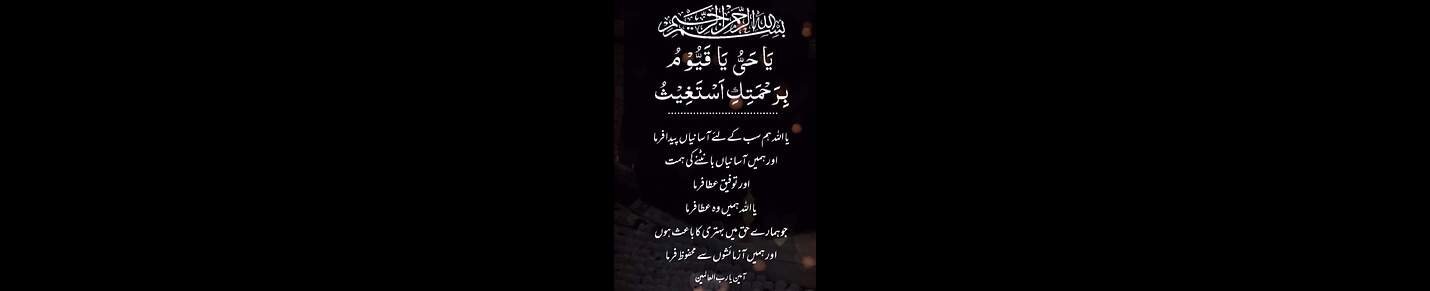 بسم الله الرحمن الرحيم
يَا حَيُّ يَا قَيُّوْمُ
بِرَحْمَتِكِ اَسْتَغِيْثُ
یا اللہ ہم سب کے لئے آسانیاں پیدا فرما
اور ہمیں آسانیاں بانٹنے کی ہمت
اور توفیق عطا فرما
یا اللہ ہمیں وہ عطا فرما
جو ہمارے حق میں بہتری کا باعث ہوں
اور ہمیں آزمائشوں سے محفوظ فرما
آمین یا رب العالمین